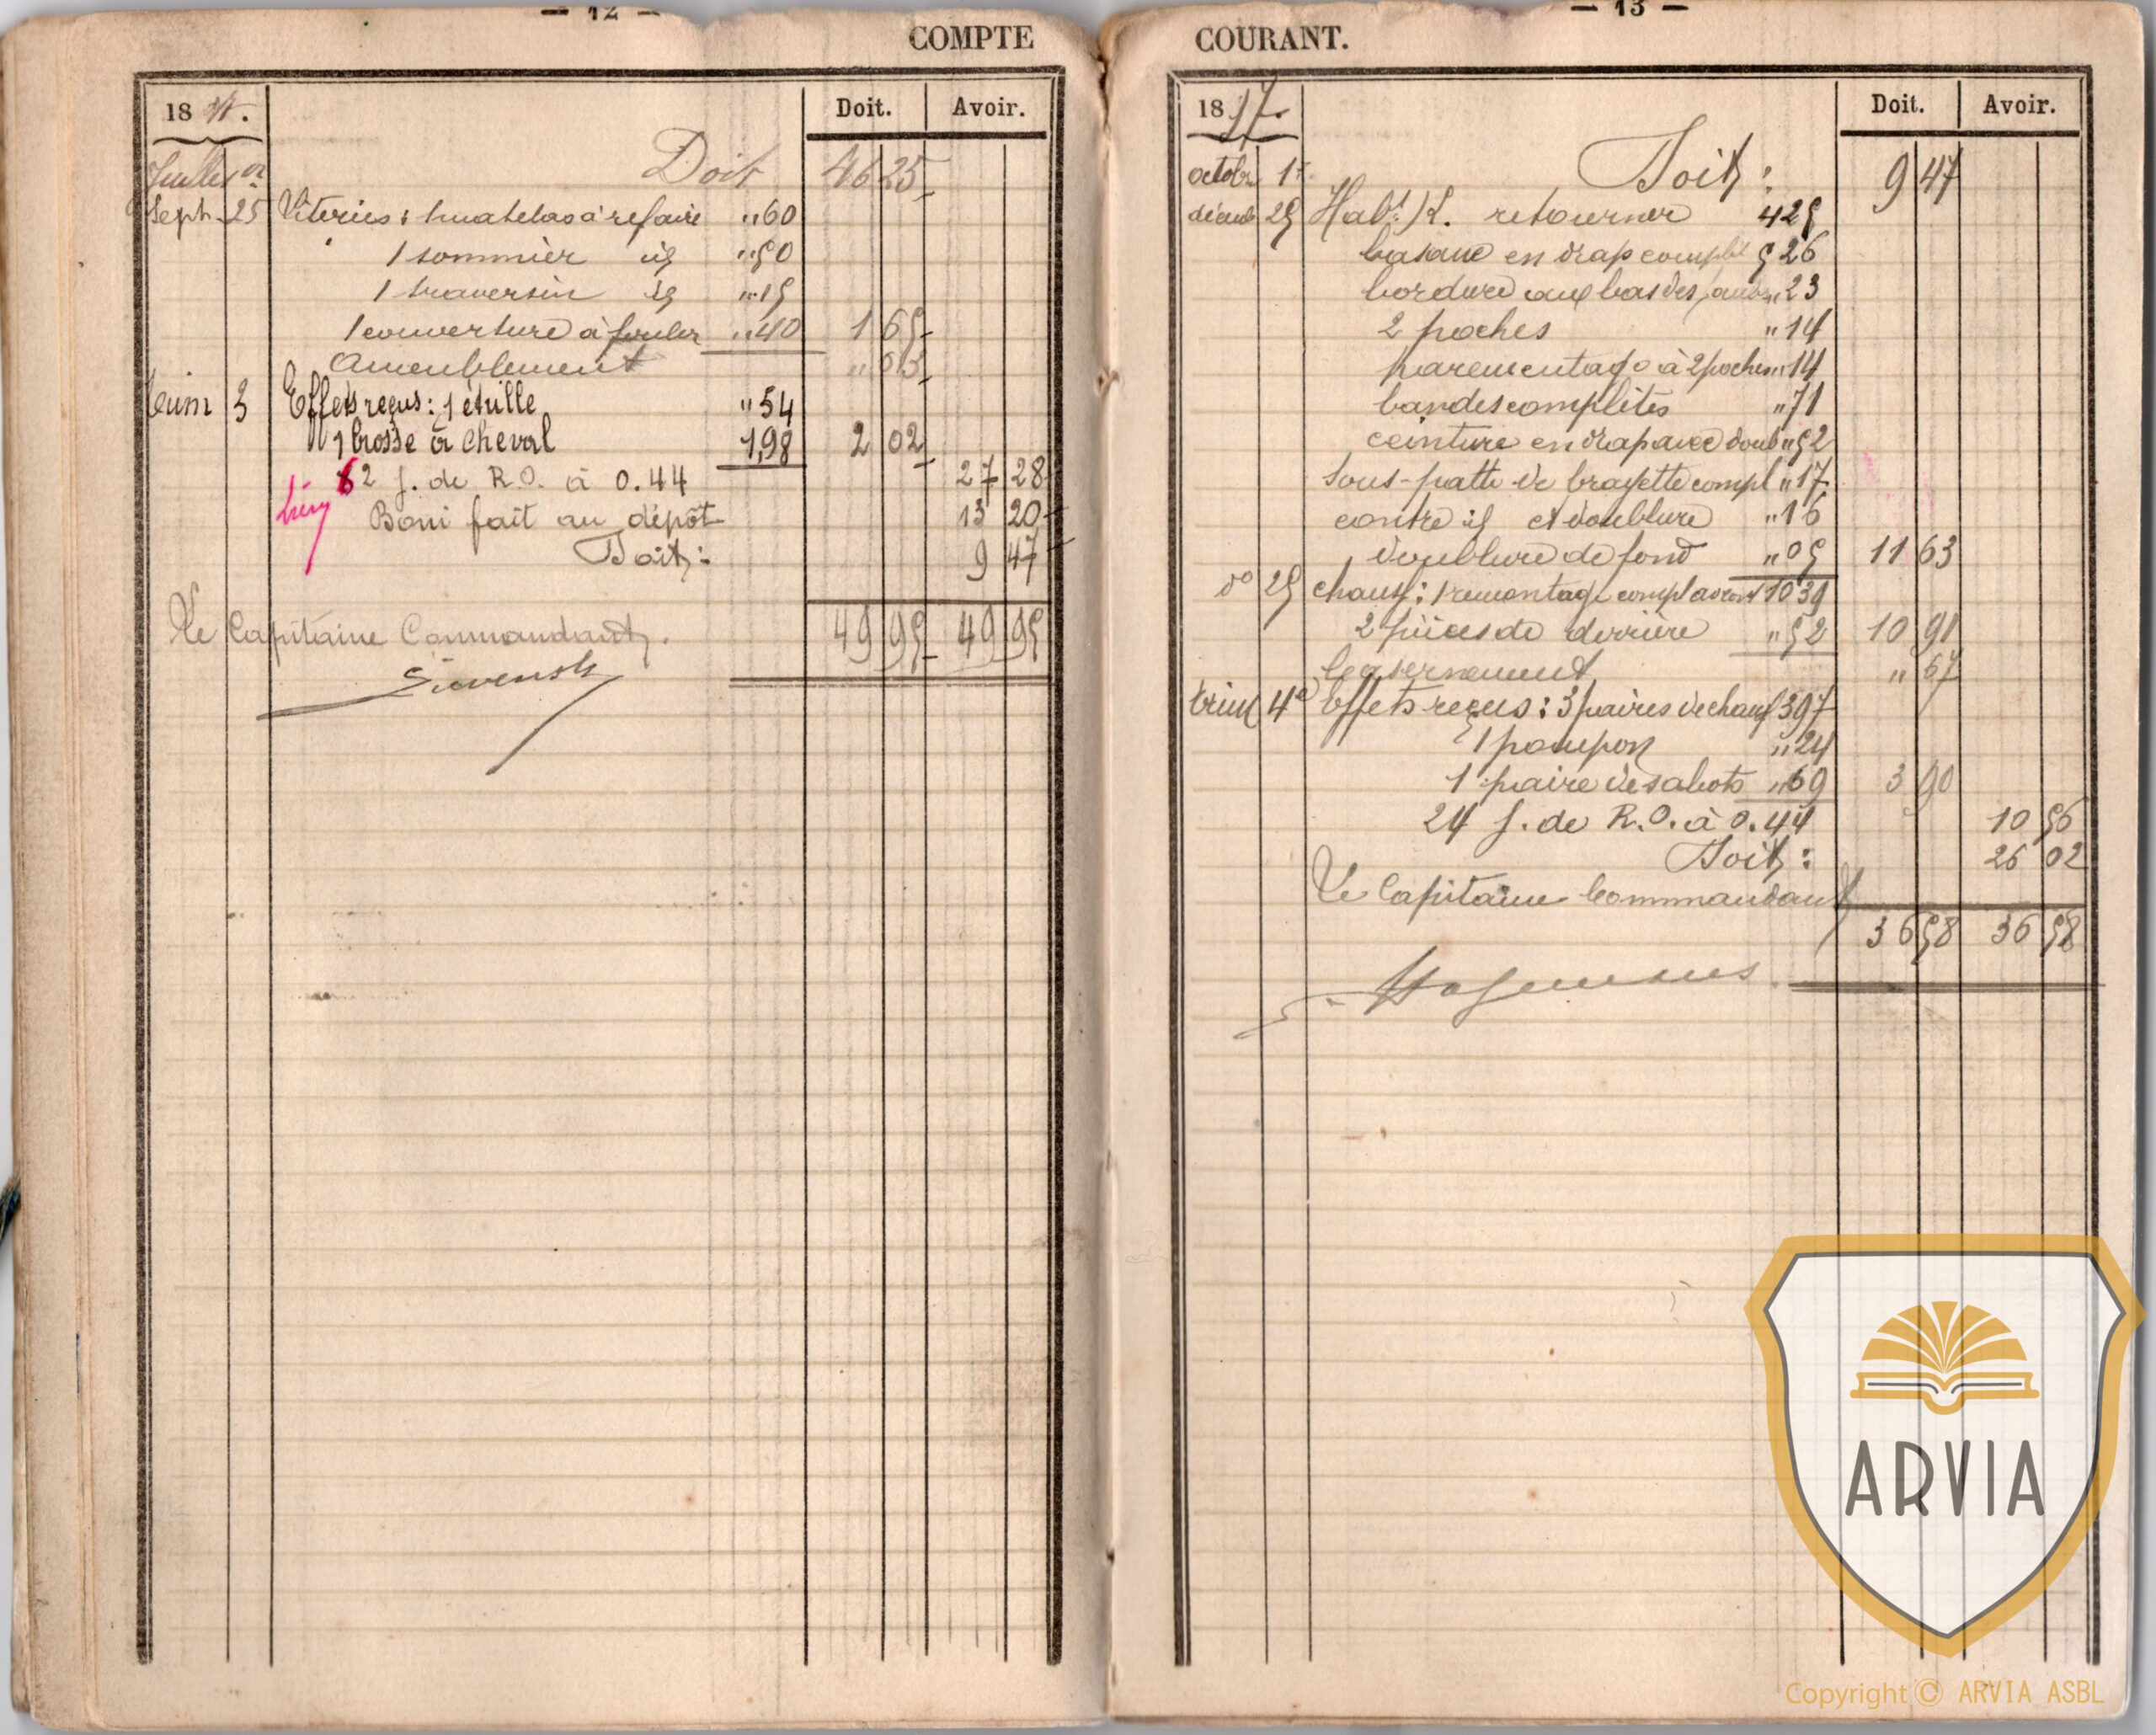 — 12 —
COMPTE
18
Doit. Avoir.
Juillet 1er Doit 46 25
Sept. 25 Literies : 1 matelas à refaire " 60
1 sommier id " 50
1 traversin id " 15
1 couverture à fouler " 40 1 65
Ameublement " 03
trim 3 Effets reçus : 1 étrille " 54
1 brosse à cheval 1,98 2 02
62 j. de R.O. à 0.44 27 28
Boni fait au dépôt 13 20
Doit : 9 47
Le Capitaine Commandant.
49 95 49 95
— 13 —
COURANT.
1897.
Doit. Avoir.
octobr 1r Doit : 9 47
décemb 25 Habt K. retourner 4 25
basane en drap complet 5 26
bordure aux bas des " 23
2 poches " 14
parementage à 2 poches " 14
bandes complètes " 71
ceinture en drap avec doub " 52
sous-patte de brayette compl " 17
contre id et doublure " 16
doublure de fond " 05 11 63
do 25 chauss : 1 remontage compl 10 39
2 pièces de derrière " 52 10 91
Casernement " 67
trim 4e Effets reçus : 3 paires de chauss 3 97
1 pompon " 24
1 paire de sabots " 69 3 90
24 j. de R.O. à 0.44 10 56
Doit : 26 02
Le Capitaine Commandant
36 58 36 58
ARVIA
Copyright © ARVIA ASBL